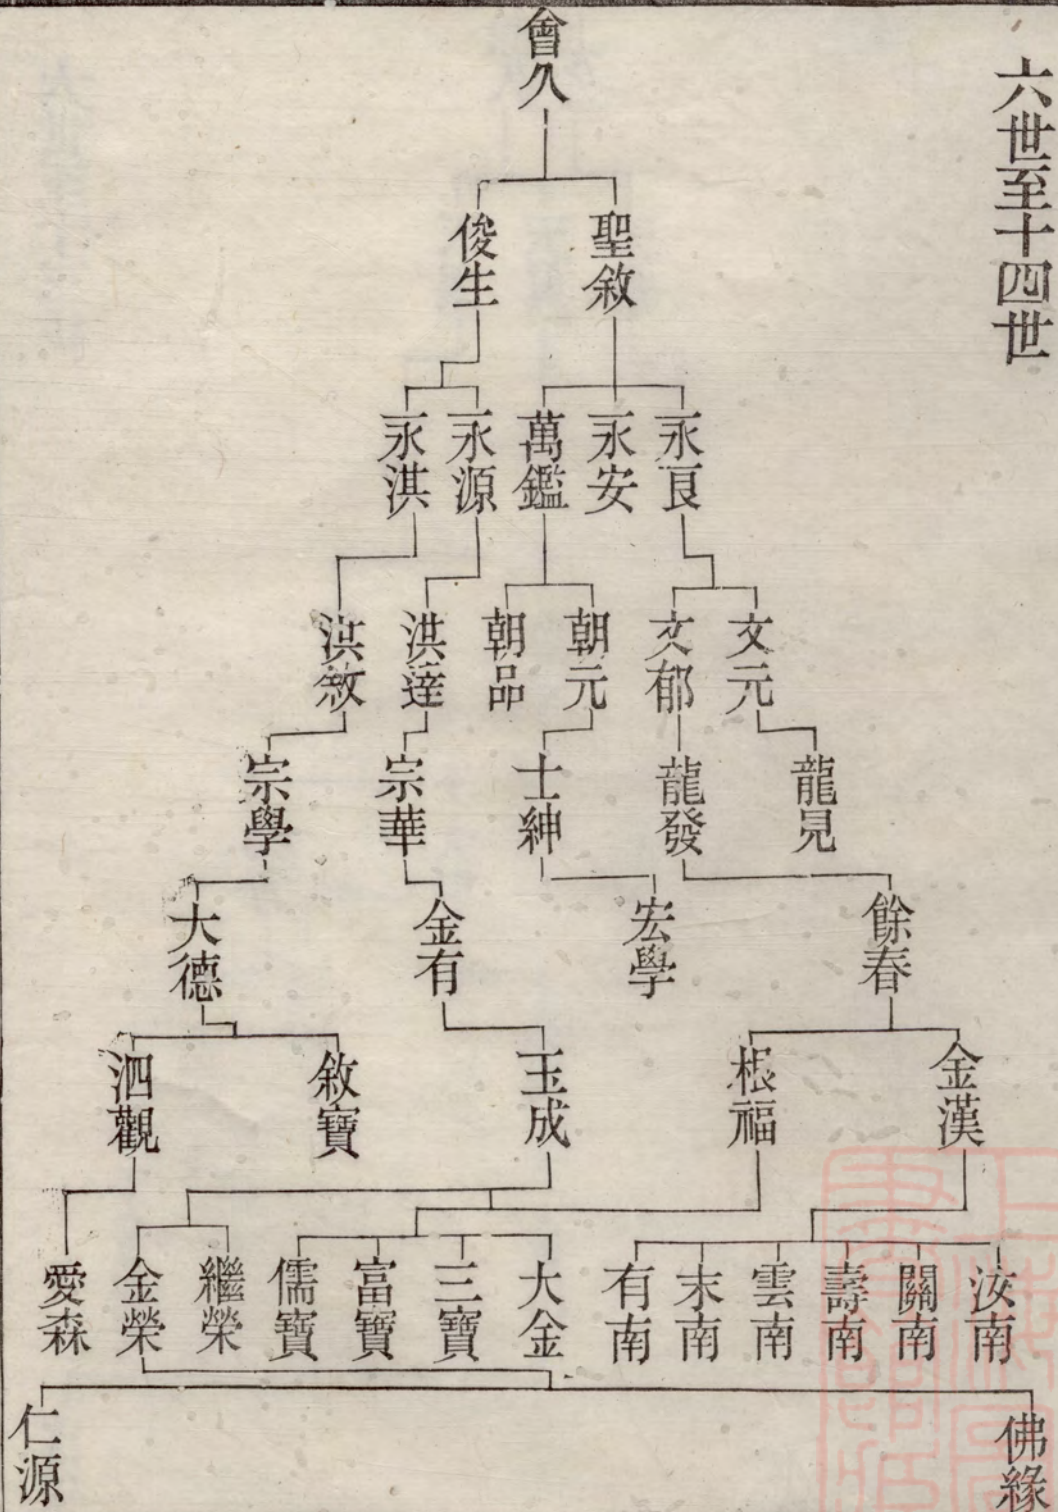 六世至十四世
會久
聖敘
俊生
永良
永安
萬鑑
永源
永淇
文元
文郁
朝元
朝品
洪達
洪敘
龍見
龍發
士紳
宗華
宗學
餘春
宏學
金有
大德
金漢
根福
玉成
敘寶
泗觀
汝南
關南
壽南
雲南
末南
有南
大金
三寶
富寶
儒寶
繼榮
金榮
愛森
佛緣
仁源